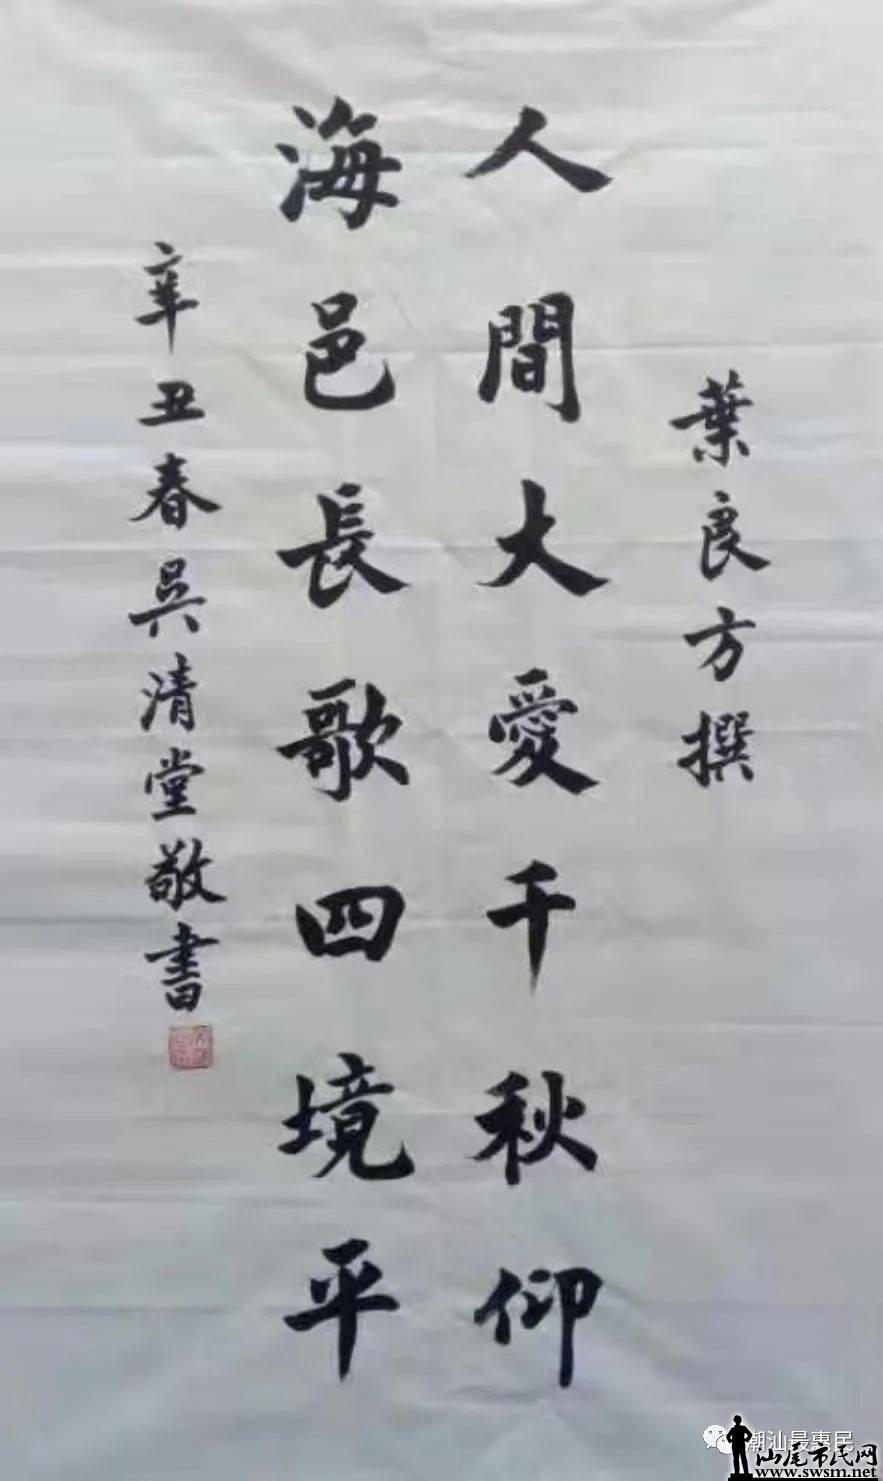 葉良方撰
人間大愛千秋仰
海邑長歌四境平
辛丑春吳清堂敬書
潮汕最惠民
汕尾市民网
www.swsm.net